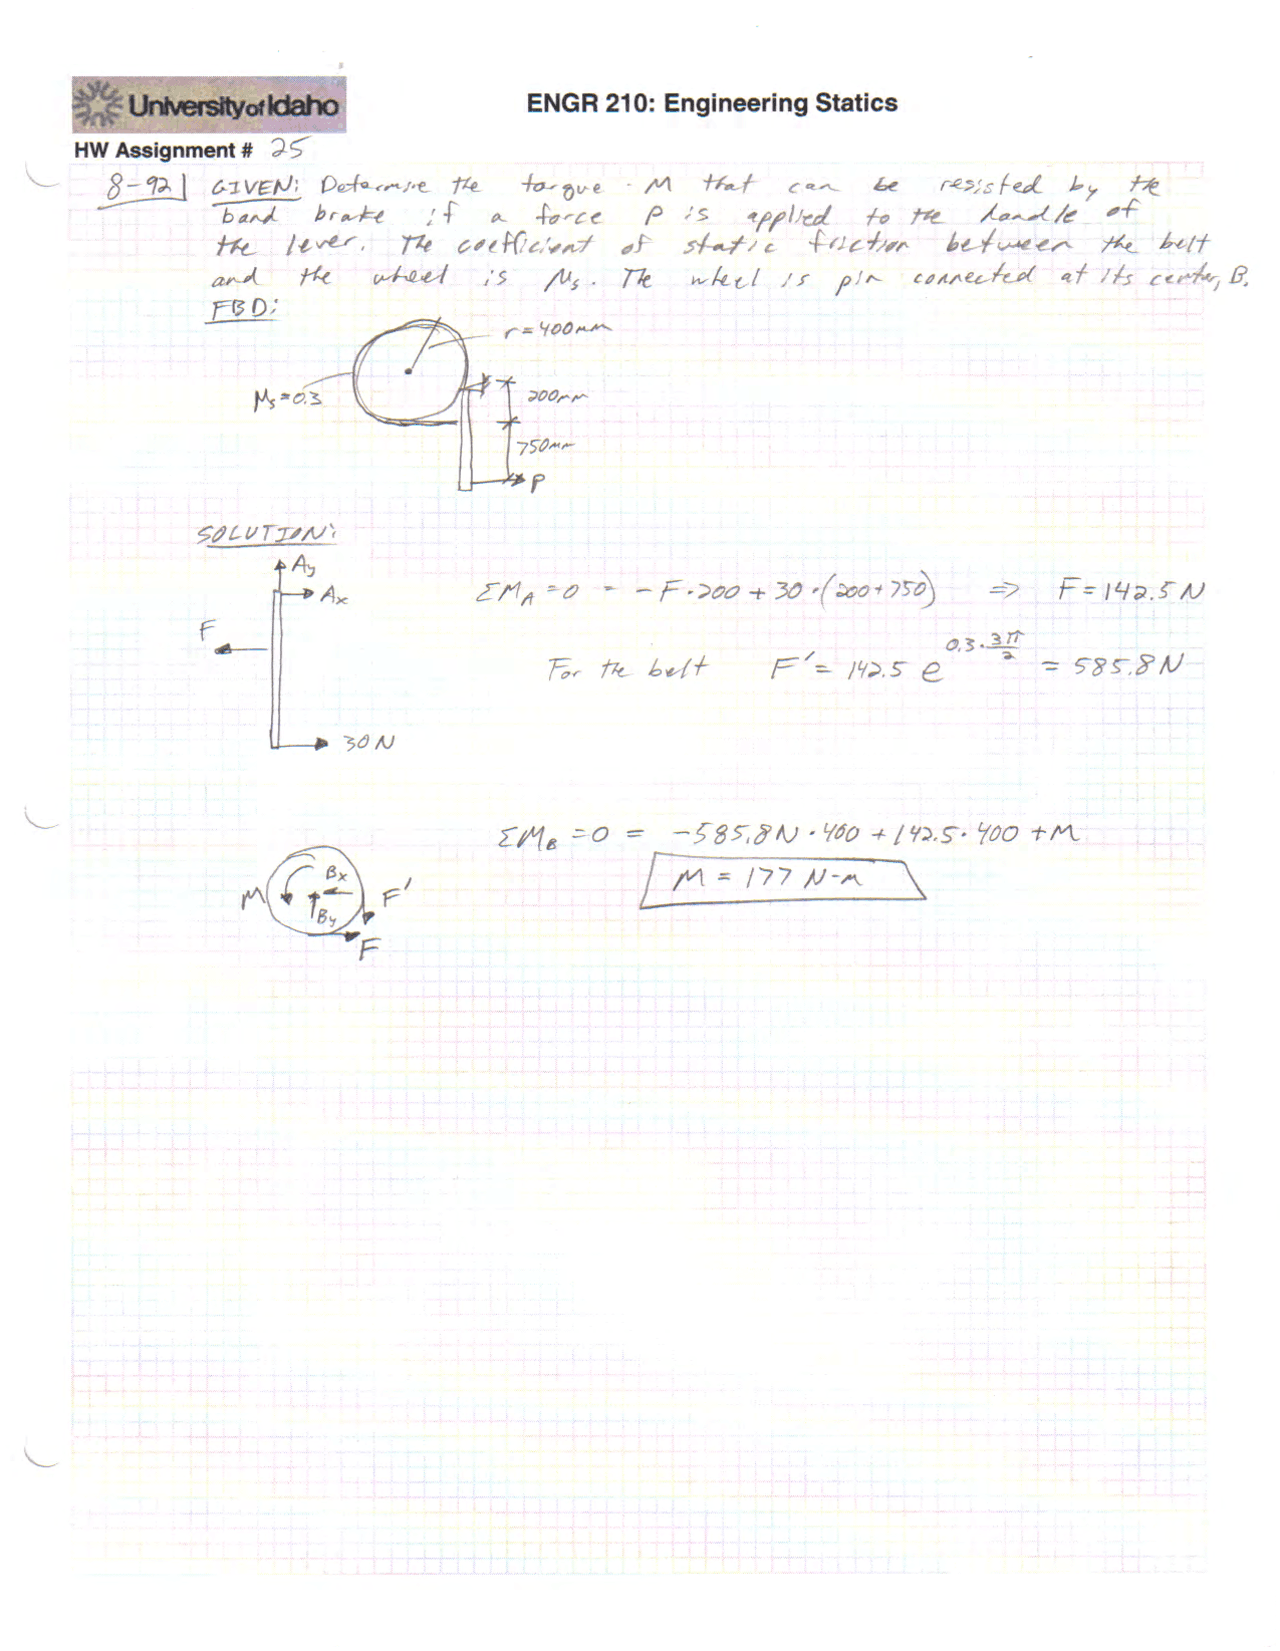 University of Idaho
ENGR 210: Engineering Statics
HW Assignment # 25
8-92 GIVEN: Determine the torque M that can be resisted by the
band brake if a force P is applied to the handle of
the lever. The coefficient of static friction between the belt
and the wheel is μs. The wheel is pin connected at its center, B.
FBD:
r=400mm
μs=0.3
200mm
750mm
P
SOLUTION:
Ay
Ax
F
30N
ΣMA=0 = -F·200 + 30·(200+750) => F=142.5 N
For the belt F'= 142.5 e^(0.3·3π/2) = 585.8 N
ΣMB =0 = -585.8N·400 + 142.5·400 + M
M = 177 N-m
M
Bx
By
F'
F